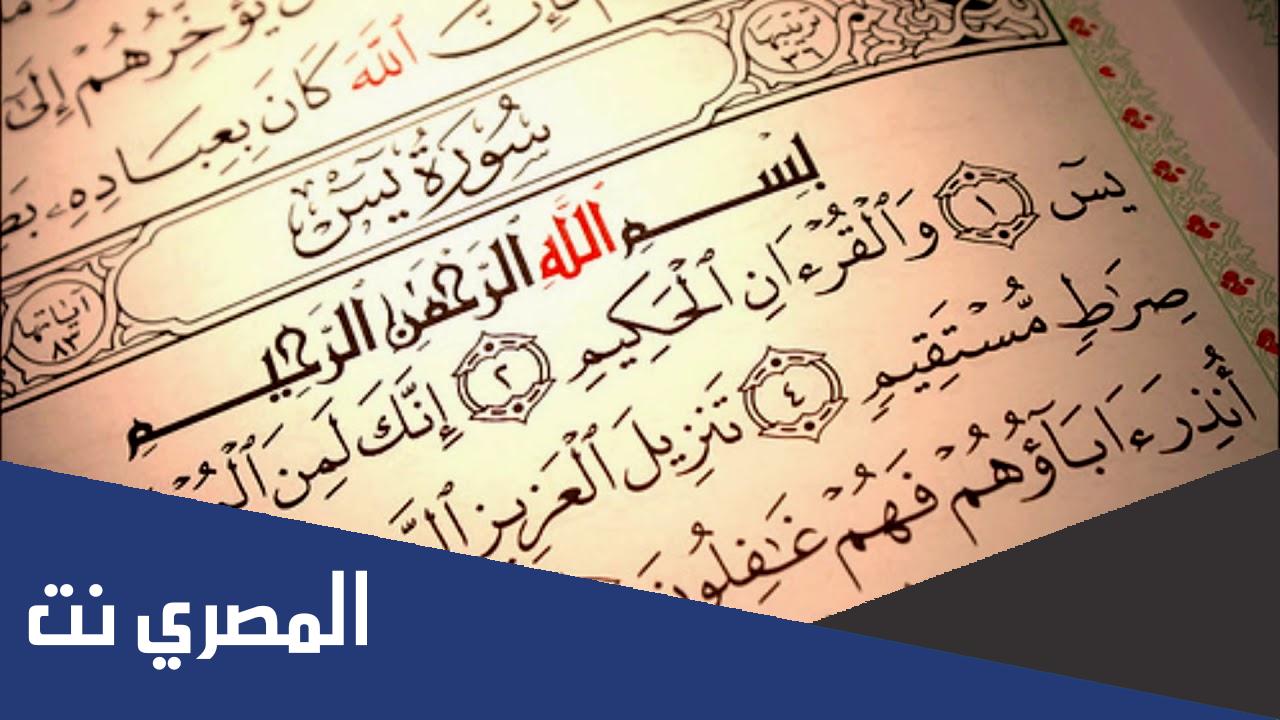 يُؤَخِّرُهُمْ إِلَىٰ
ٱللَّهَ كَانَ بِعِبَادِهِۦ
ترتيبها ٣٦
سُورَةُ يسٓ
آياتها ٨٣
بِسْمِ اللَّهِ الرَّحْمَٰنِ الرَّحِيمِ
يسٓ ١ وَٱلْقُرْءَانِ ٱلْحَكِيمِ ٢ إِنَّكَ لَمِنَ
صِرَٰطٍ مُّسْتَقِيمٍ ٤ تَنزِيلَ ٱلْعَزِيزِ
أُنذِرَ ءَابَآؤُهُمْ فَهُمْ غَٰفِلُونَ
المصري نت